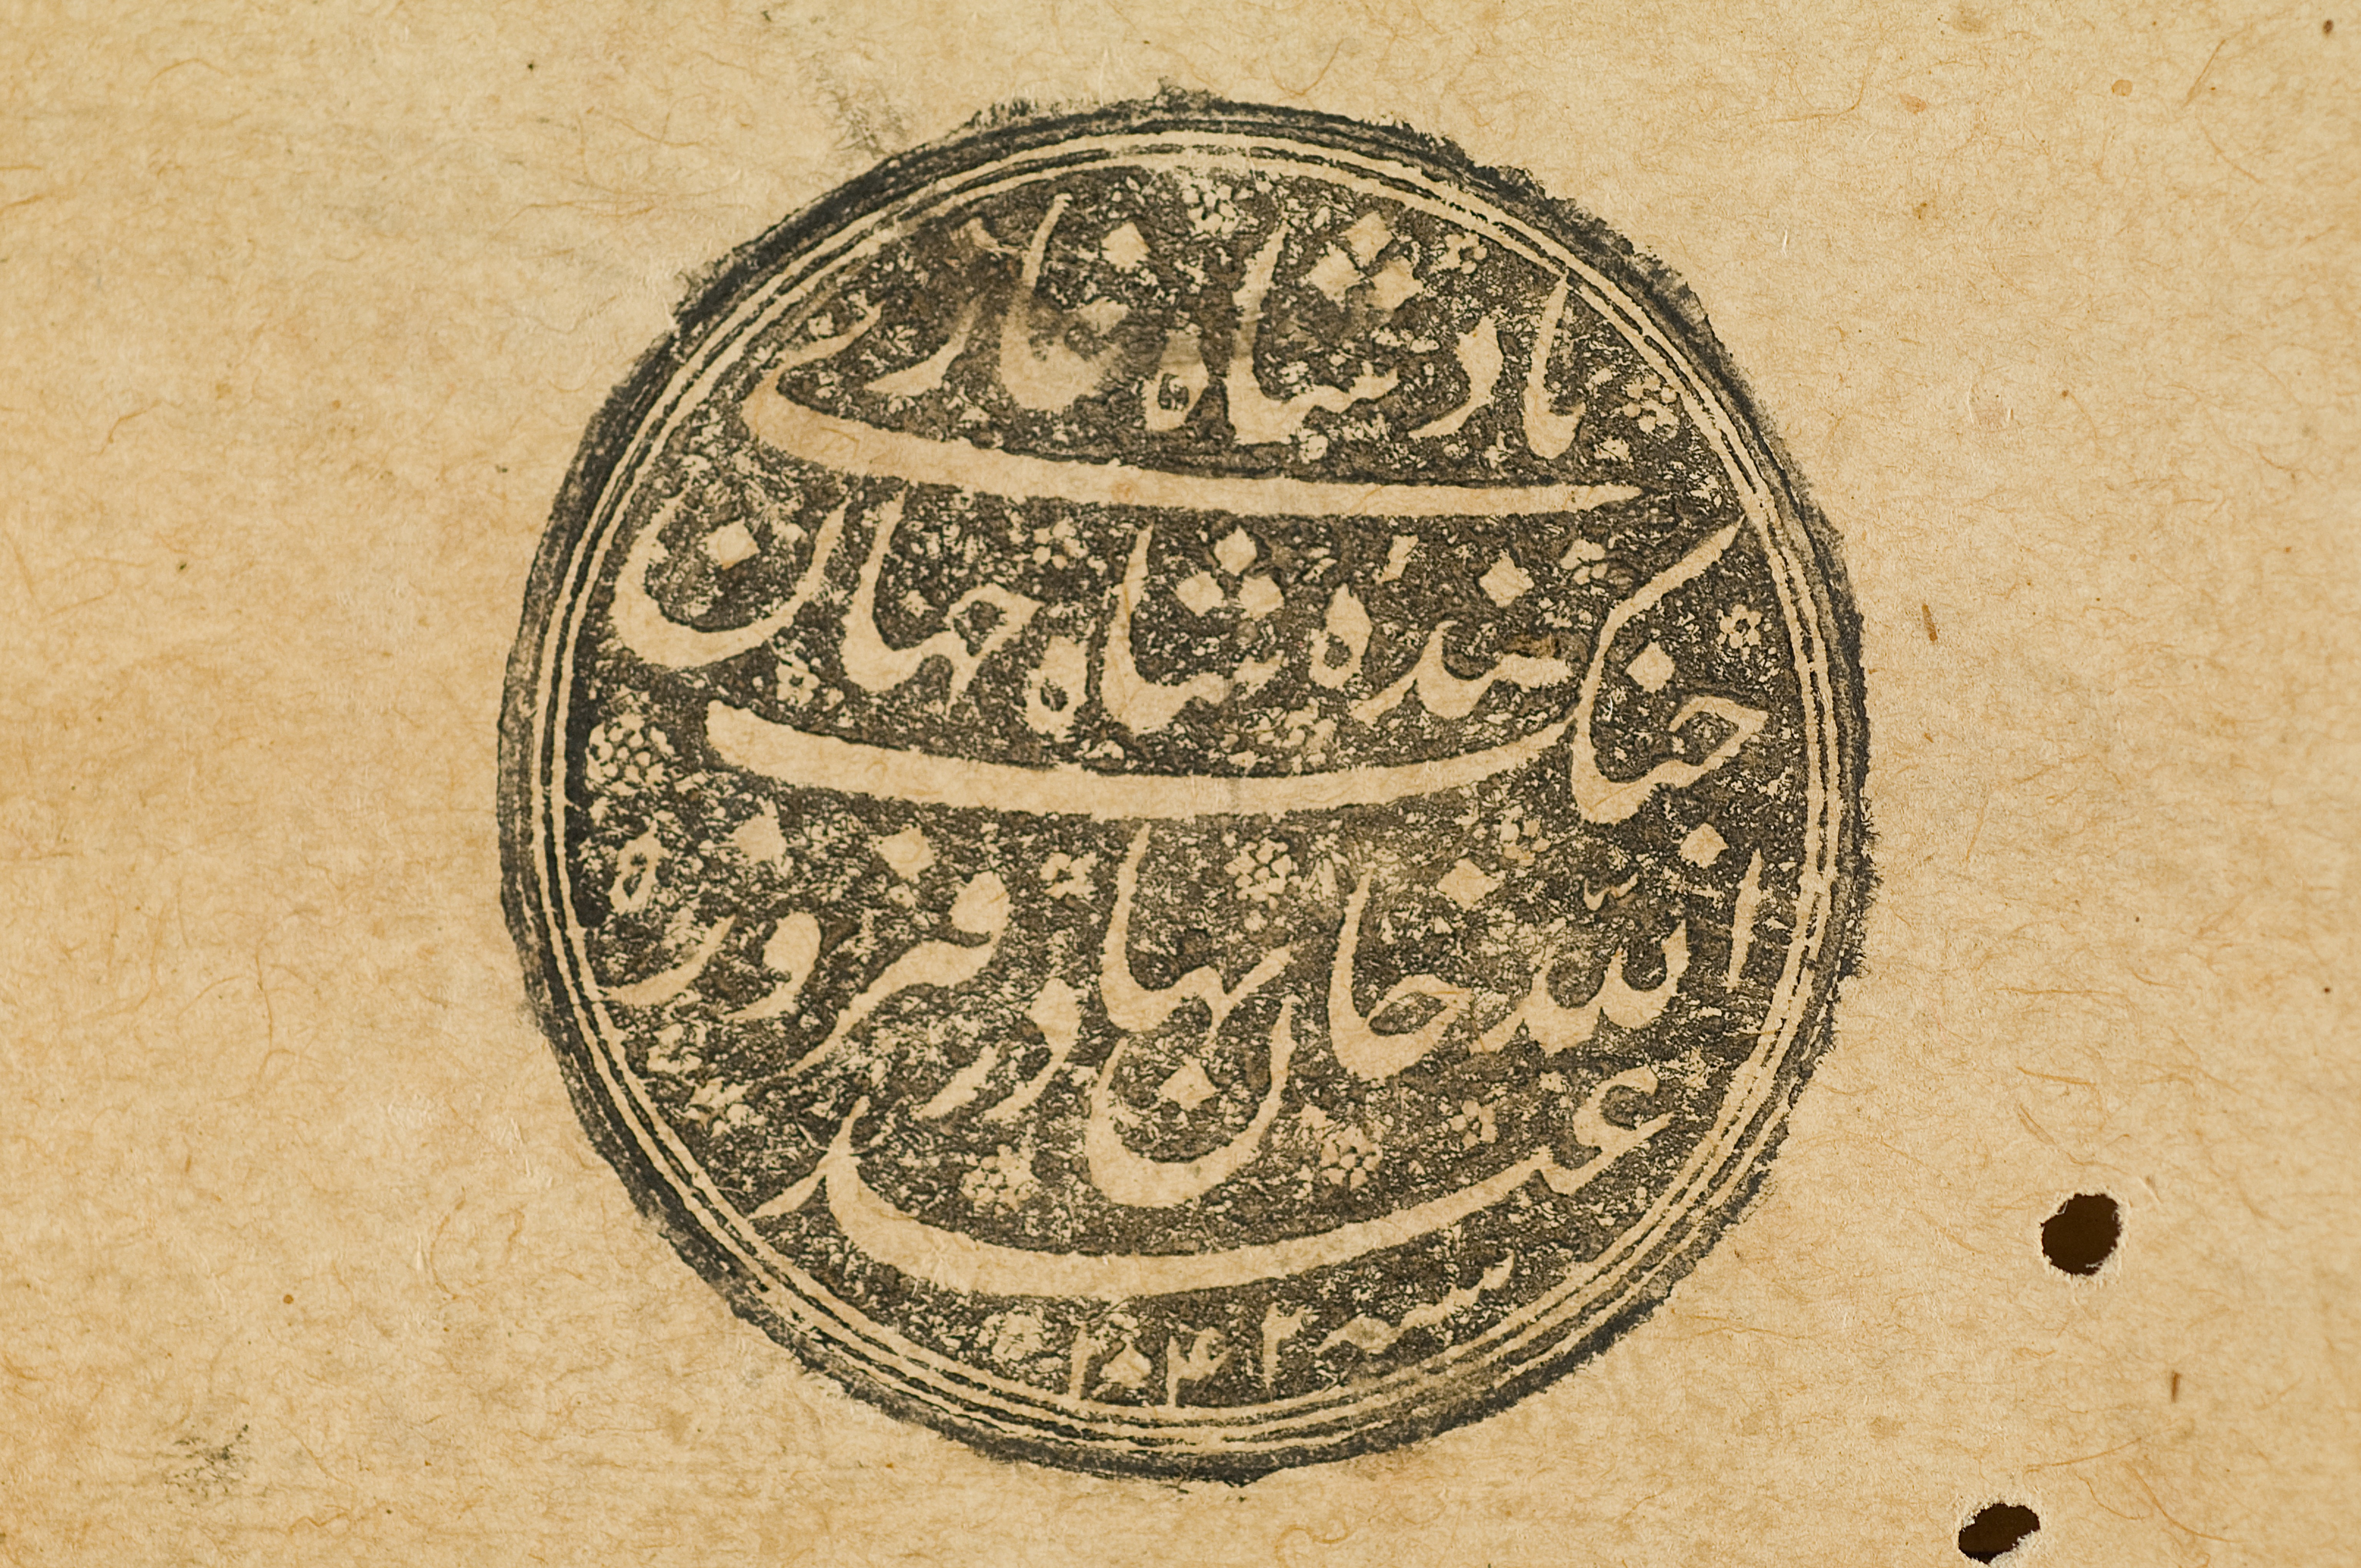 بادشاه غازی
جنک بنده شاه جهان
عبد الله خان بهادر فیروز
سنه ۱۰۴۲